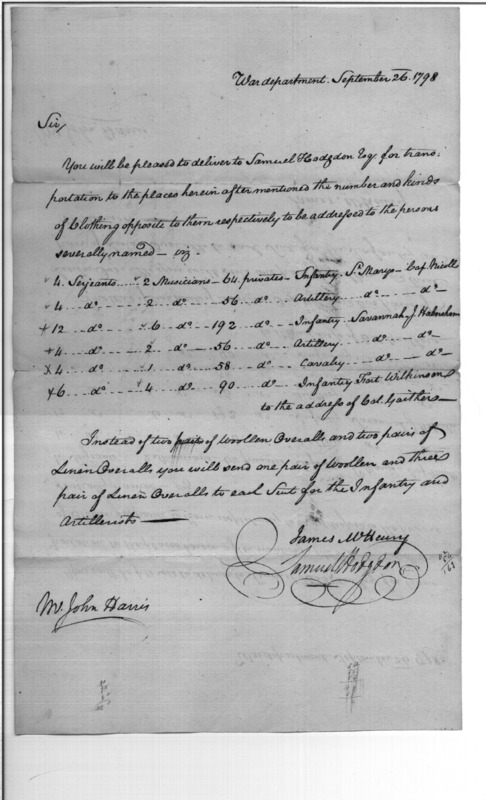 War department. September 26. 1798
Sir,
You will be pleased to deliver to Samuel Hodgdon Esq. for trans-
portation to the places herein after mentioned the number and kinds
of Clothing opposite to them respectively to be addressed to the persons
severally named — viz.
4. Serjeants - 2 Musicians - 64 privates - Infantry St. Marys - Cap. Nicoll
4 do - 2 do - 56 do - Artillery do - do
12 do - 6 do - 192 do - Infantry Savannah J. Habersham
4 do - 2 do - 56 do - Artillery do - do
4 do - 1 do - 58 do - Cavalry do - do
6 do 4 do 90 do - Infantry Fort Wilkinson
to the address of Col. Gaither —
Instead of two pairs of Woollen Overalls and two pairs of
Linen Overalls you will send one pair of Woollen and three
pair of Linen Overalls to each Suit for the Infantry and
Artillerists —
James McHenry
Samuel Hodgdon
Mr. John Harris